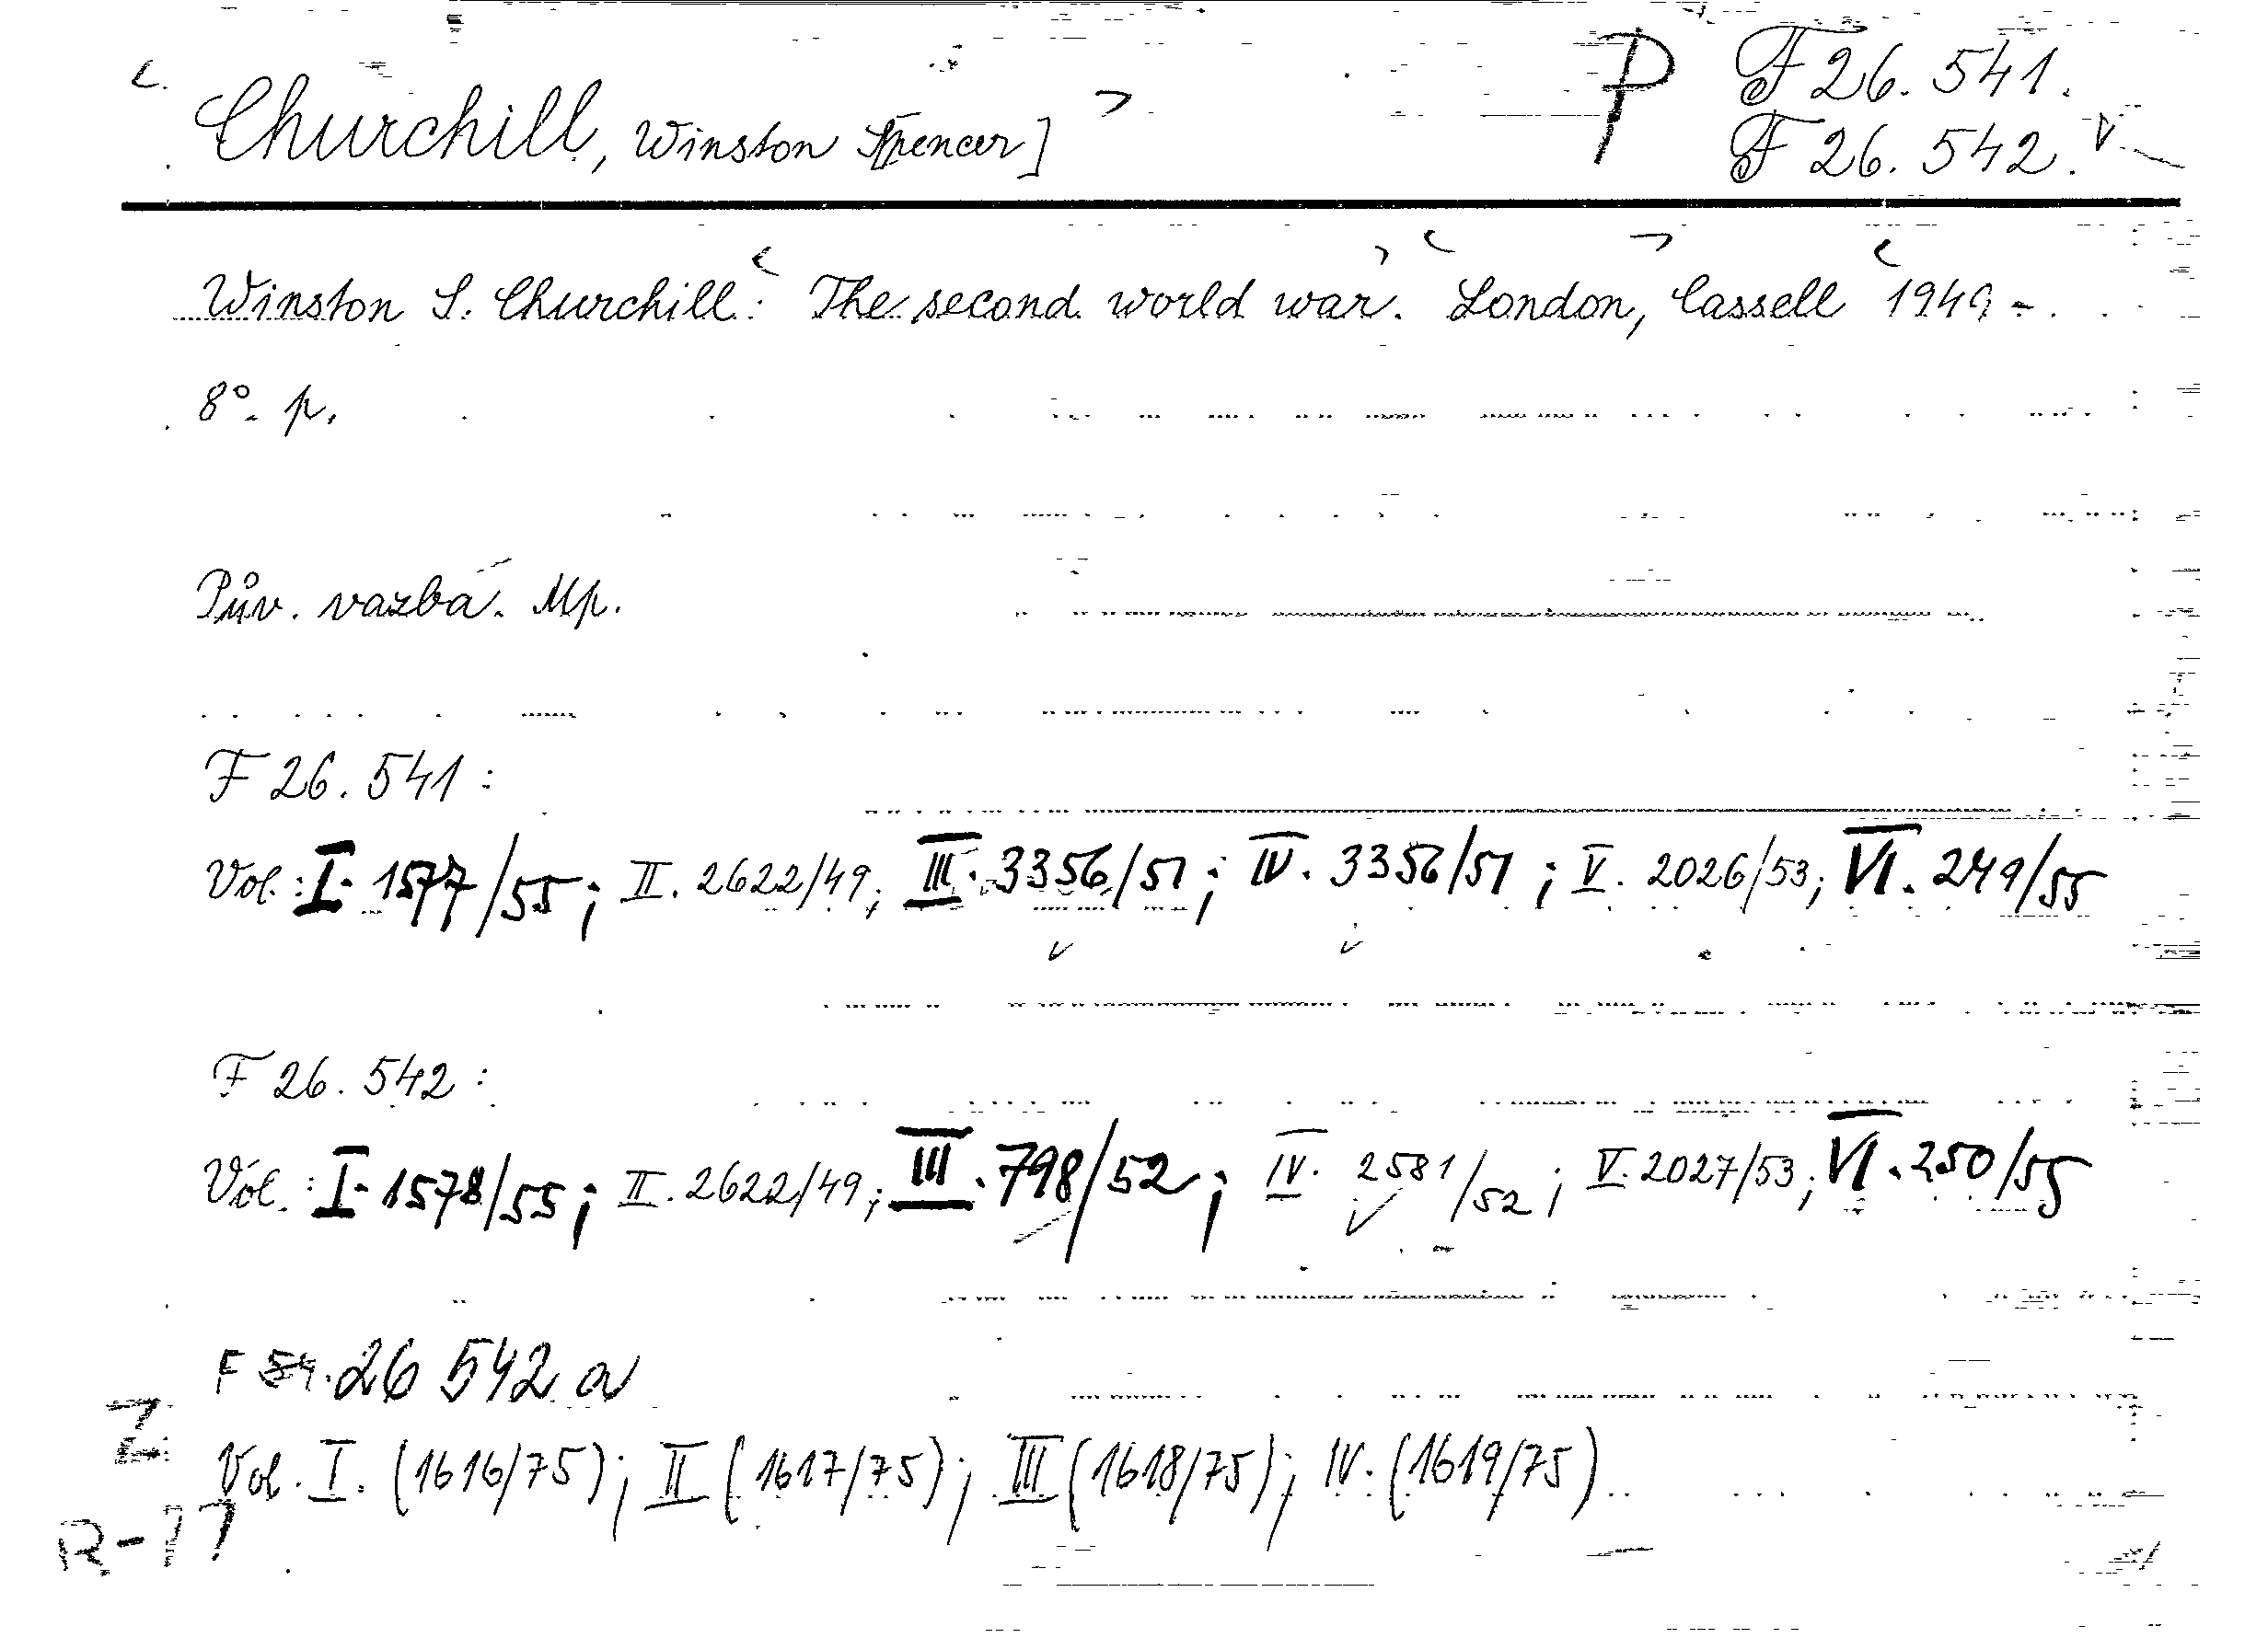 Churchill, Winston Spencer] P F 26.541.
F 26.542.
Winston S. Churchill: The second world war. London, Cassell 1949 - .
8°. p.
Pův. vazba. Mp.
F 26.541:
Vol.: I. 1577/55; II. 2622/49; III. 3356/51; IV. 3356/51; V. 2026/53; VI. 249/55
F 26.542:
Vol.: I. 1578/55; II. 2622/49; III. 798/52; IV. 2581/52; V. 2027/53; VI. 250/55
F 26 542 a
Z
Vol. I. (1616/75); II (1617/75); III (1618/75); IV. (1619/75)
R-17